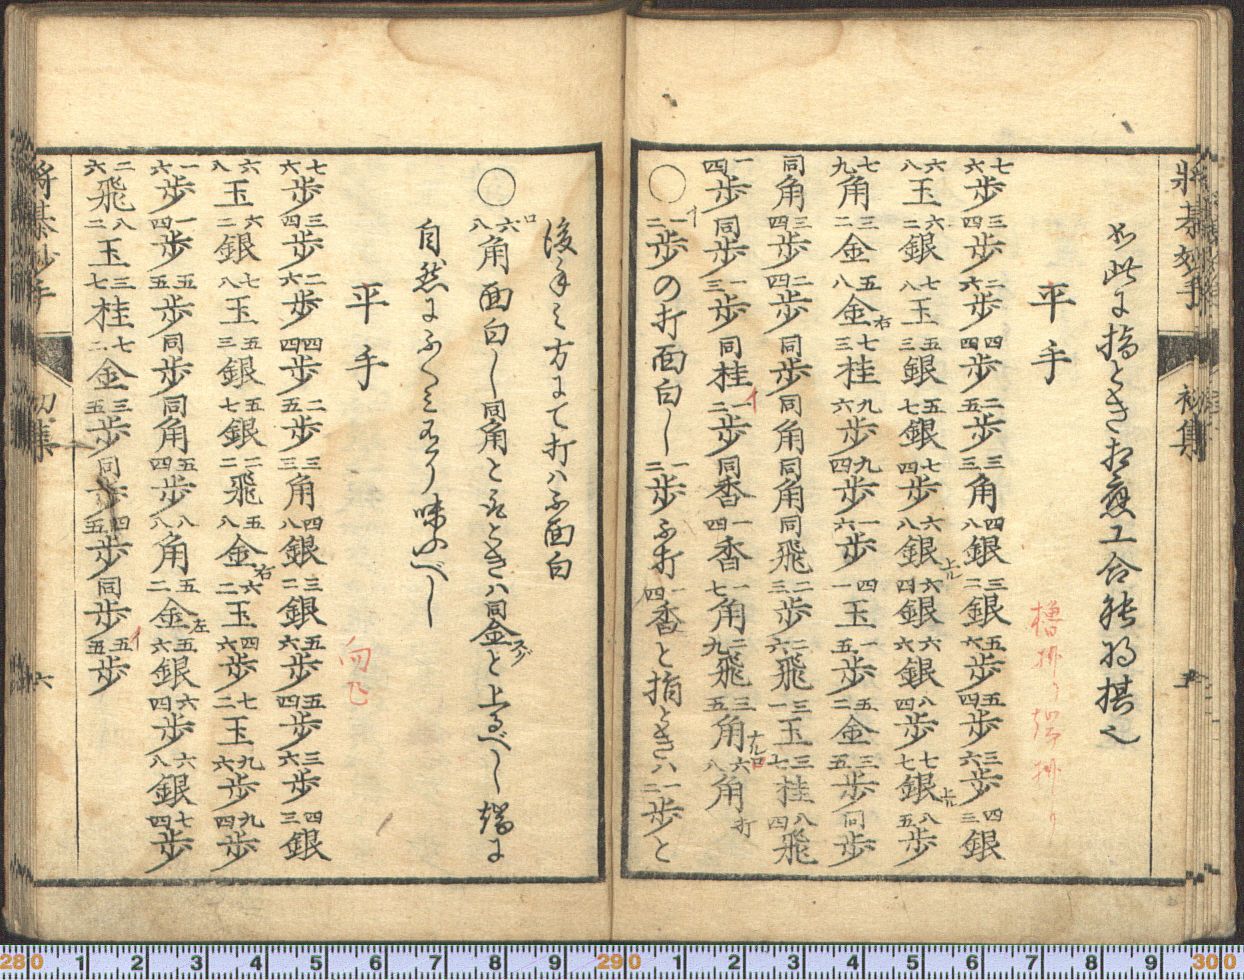 将棊妙手 初集 五
如此に指ときお應工合能将棋也
平手
櫓掛り端掛り
七六歩三四歩二六歩四四歩二五歩三三角四八銀三二銀五六歩五四歩三六歩四三銀
六八玉六二銀七八玉五三銀五七銀七四歩六八銀上ル六四銀六六歩八四歩七七銀上ル八五歩
七九角三二金五八金右七三桂九六歩九四歩一六歩四一玉一五歩五二金三五歩同歩
同角三四歩二四歩同歩同角同角同飛二三歩二六飛三一玉三七桂八四飛
一四歩同歩一三歩同桂イ一二歩同香一四香一七角二九飛三五角ナルロ六八角打
○イ一二歩の打面白し一二歩ふ打一四香と指ときハ一二歩と
後手ミ方にて打ハふ面白
○ロ六八角面白し同角と取ときハ同金スグと上るべし端に
自然にふくミ有り味ふべし
平手
向飛
七六歩三四歩二六歩四四歩二五歩三三角四八銀三二銀五六歩五四歩三六歩四三銀
六八玉六二銀七八玉五三銀五七銀二二飛五八金右六二玉四六歩七二玉九六歩九四歩
一六歩一四歩五五歩同歩同角五四歩八八角五二金左五六銀六四歩六八銀七四歩
二六飛八二玉三七桂七二金三五歩同歩四五歩同歩イ五五歩
将棊妙手 初集 六
280 1 2 3 4 5 6 7 8 9 290 1 2 3 4 5 6 7 8 9 300